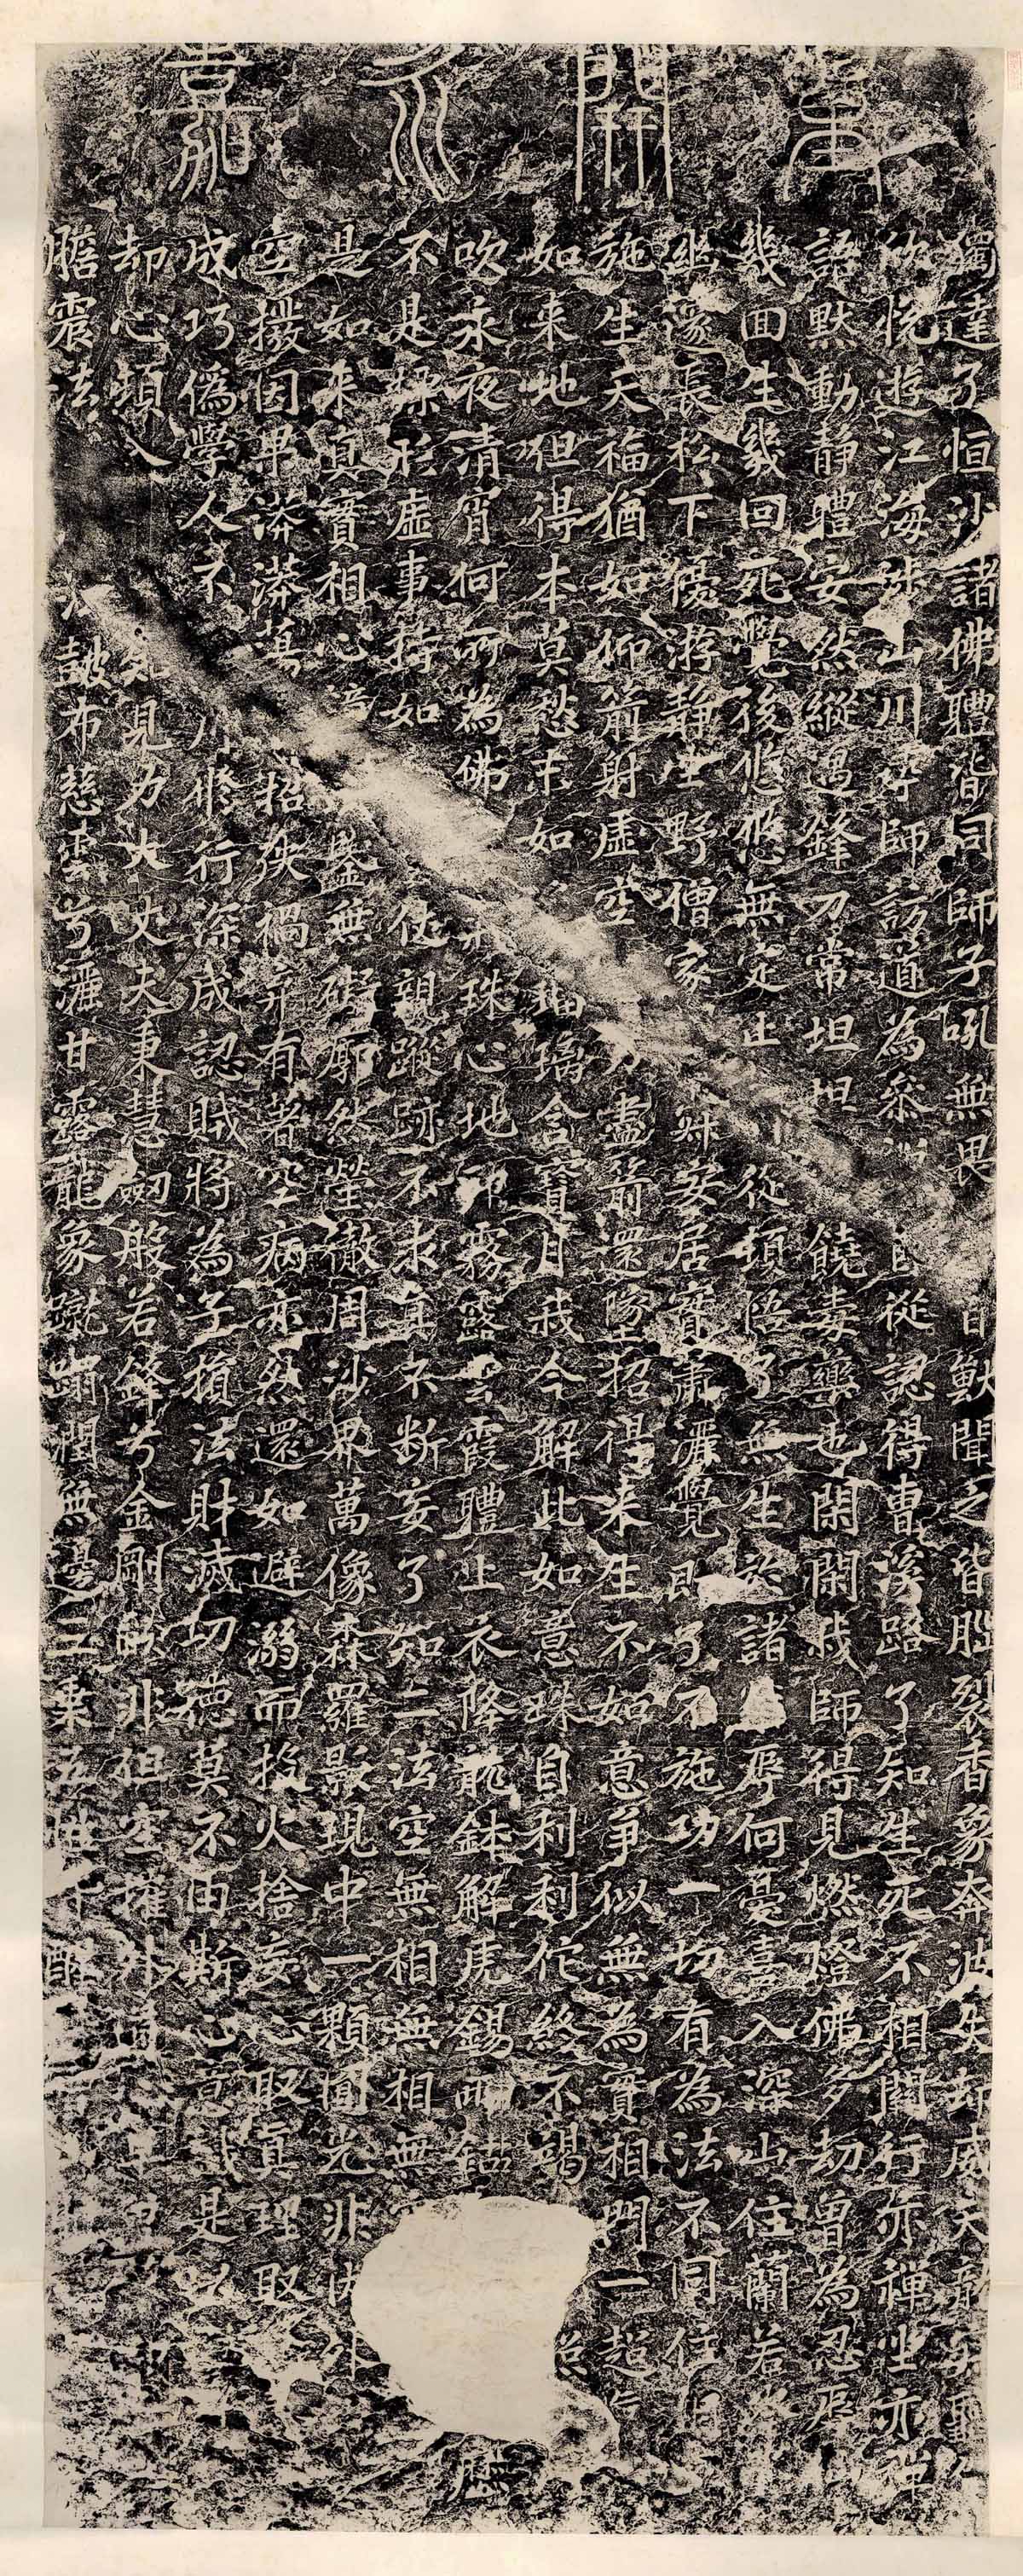 開永嘉
獨達了恒沙諸佛體皆同師子吼無畏百獸聞之皆腦裂香象奔波失却威天龍寂聽
欣悅遊江海涉山川尋師訪道為參自從認得曹溪路了知生死不相關行亦禪坐亦禪
語默動靜體安然縱遇鋒刀常坦坦饒毒藥也閑閑我師得見燃燈佛多劫曾為忍辱
幾回生幾回死覺後悠悠無定止從頓悟了無生於諸辱何憂喜入深山住蘭若
邃長松下優游靜坐野僧家安居實蕭灑覺即了不施功一切有為法不同住相
施生天福猶如仰箭射虛空力盡箭還墜招得来生不如意爭似無為實相門一超
如来地但得本莫愁末如瑠璃含寶月我今解此如意珠自利利佗終不竭
吹永夜清宵何所為佛珠心地印霧露雲霞體上衣降龍鉢解虎錫兩鈷
不是摽形虛事持如仗親蹤跡不求真不断妄了知二法空無相無相無
是如来真實相心鏡鑒無礙廓然瑩徹周沙界萬像森羅影現中一顆圓光非内外
空撥因果漭漭蕩招殃禍弃有著空病亦然還如避溺而投火捨妄心取真理取
成巧偽學人不用修行深成認賊將為子損法財滅功德莫不由斯心意識是以
却心頓入見力大丈夫秉慧劍般若鋒兮金剛焰非但空摧外道
膽震法法鼓布慈雲兮灑甘露龍象蹴蹋潤無邊三乘五性醒